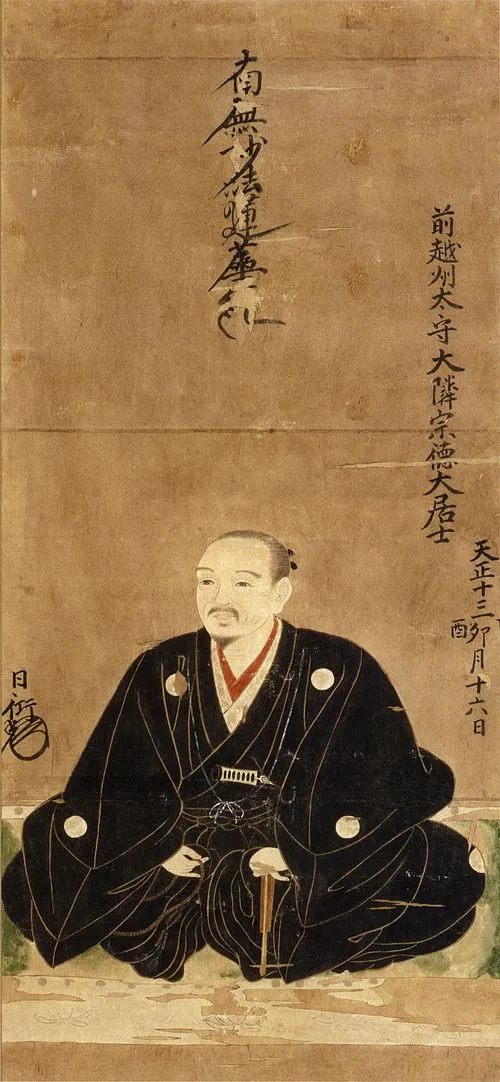 南無妙法蓮華経
前越州太守大隣宗徳大居士
天正十三酉卯月十六日
日衍